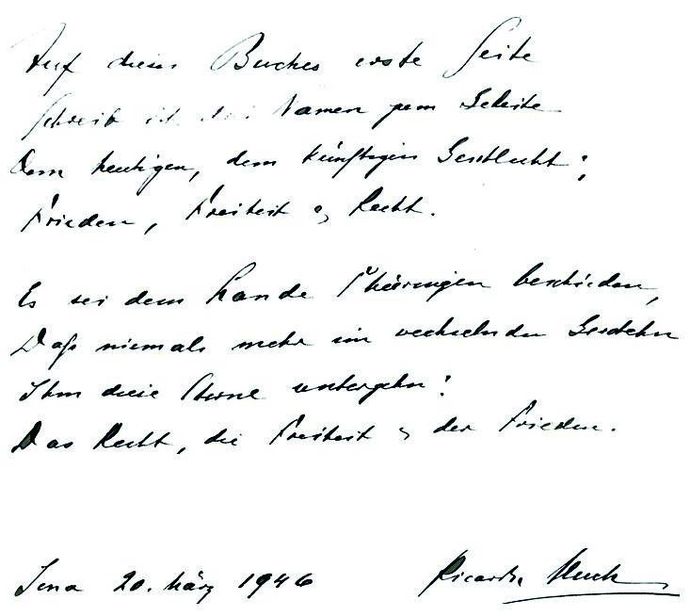 Auf dieses Buches erste Seite
Schreib ich drei Namen zum Geleite
Dem heutigen, dem künftigen Geschlecht:
Frieden, Freiheit & Recht.
Es sei dem Lande Thüringen beschieden,
Daß niemals mehr im wechselnden Geschehn
Ihm diese Sterne untergehn:
Das Recht, die Freiheit & der Frieden.
Jena 20. März 1946
Ricarda Huch